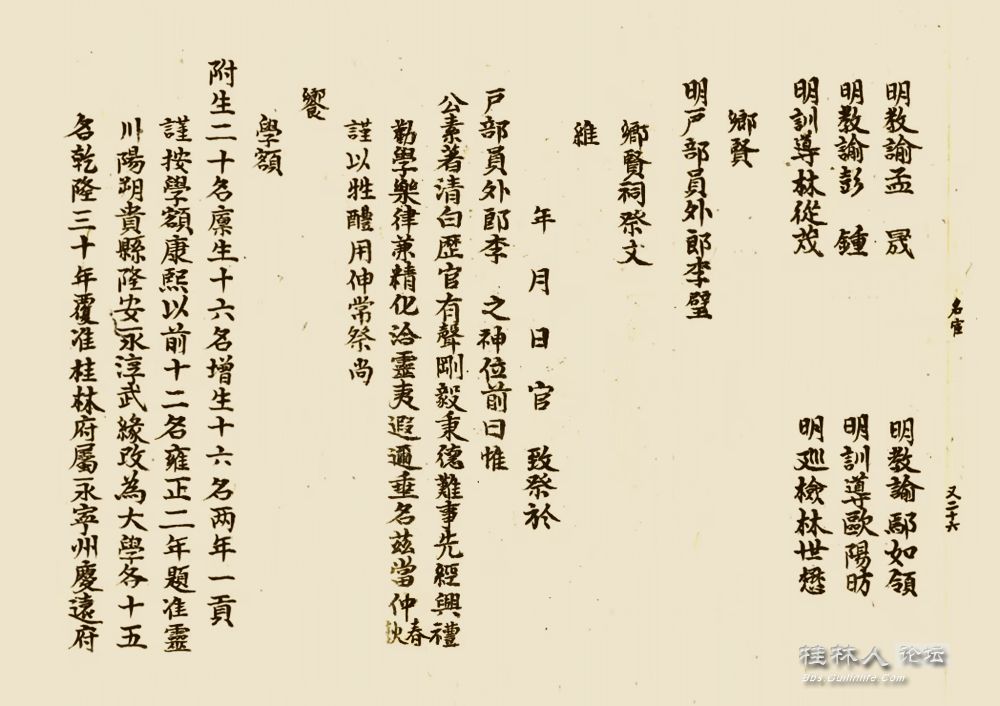 名宦
又二十六
明教諭孟　晟
明教諭鄢如領
明教諭彭　鍾
明訓導歐陽昉
明訓導林從茂
明廵檢林世懋
鄉賢
明戶部員外郎李璧
鄉賢祠祭文
維
年　月　日　官　致祭於
戶部員外郎李　之神位前曰惟
公素著清白歷官有聲剛毅秉德難事先經興禮
勤學樂律兼精化洽靈夷遐邇垂名茲當仲春秋
謹以牲醴用伸常祭尚
饗
學額
附生二十名廩生十六名增生十六名两年一貢
謹按學額康熙以前十二名雍正二年題准靈
川陽朔貴縣隆安永淳武緣改為大學各十五
名乾隆三十年覆准桂林府屬永寧州慶遠府
桂林人论坛
Bbs.Guilinlife.Com